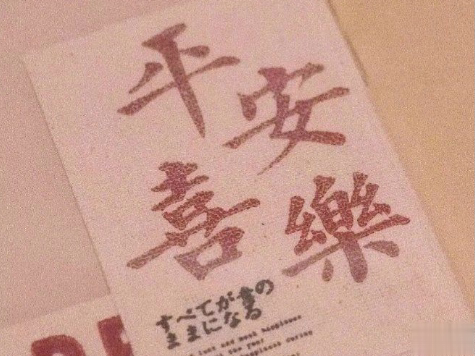 平安
喜樂
すべてが意の
ままになる
and most happiness